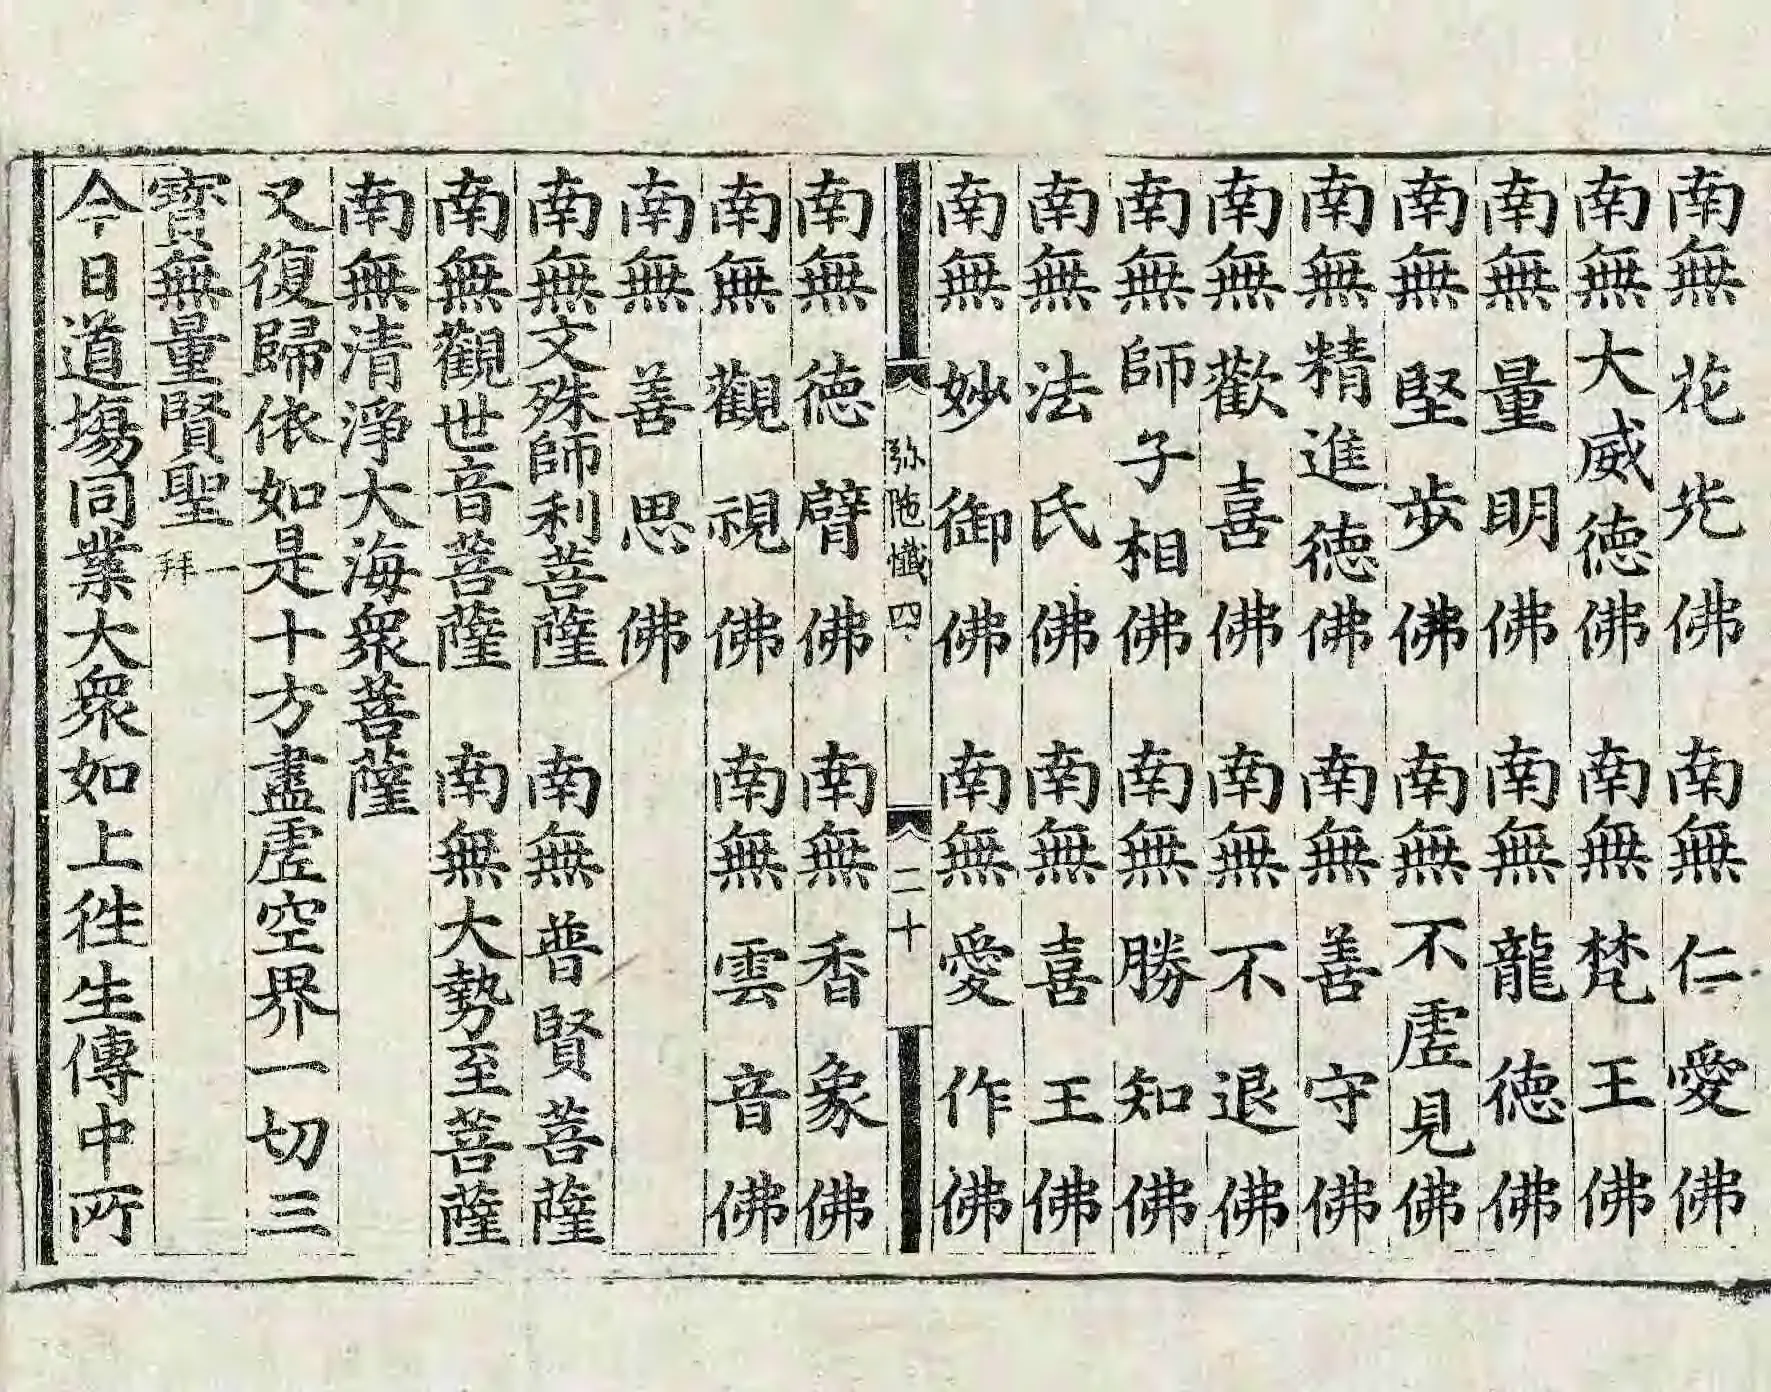 南無花光佛　南無仁愛佛
南無大威德佛　南無梵王佛
南無量明佛　南無龍德佛
南無堅步佛　南無不虛見佛
南無精進德佛　南無善守佛
南無歡喜佛　南無不退佛
南無師子相佛　南無勝知佛
南無法氏佛　南無喜王佛
南無妙御佛　南無愛作佛
弥陁懺四　二十
南無德臂佛　南無香象佛
南無觀視佛　南無雲音佛
南無善思佛
南無文殊師利菩薩　南無普賢菩薩
南無觀世音菩薩　南無大勢至菩薩
南無清淨大海衆菩薩
又復歸依如是十方盡虛空界一切三
寶無量賢聖一拜
今日道塲同業大衆如上徃生傳中所